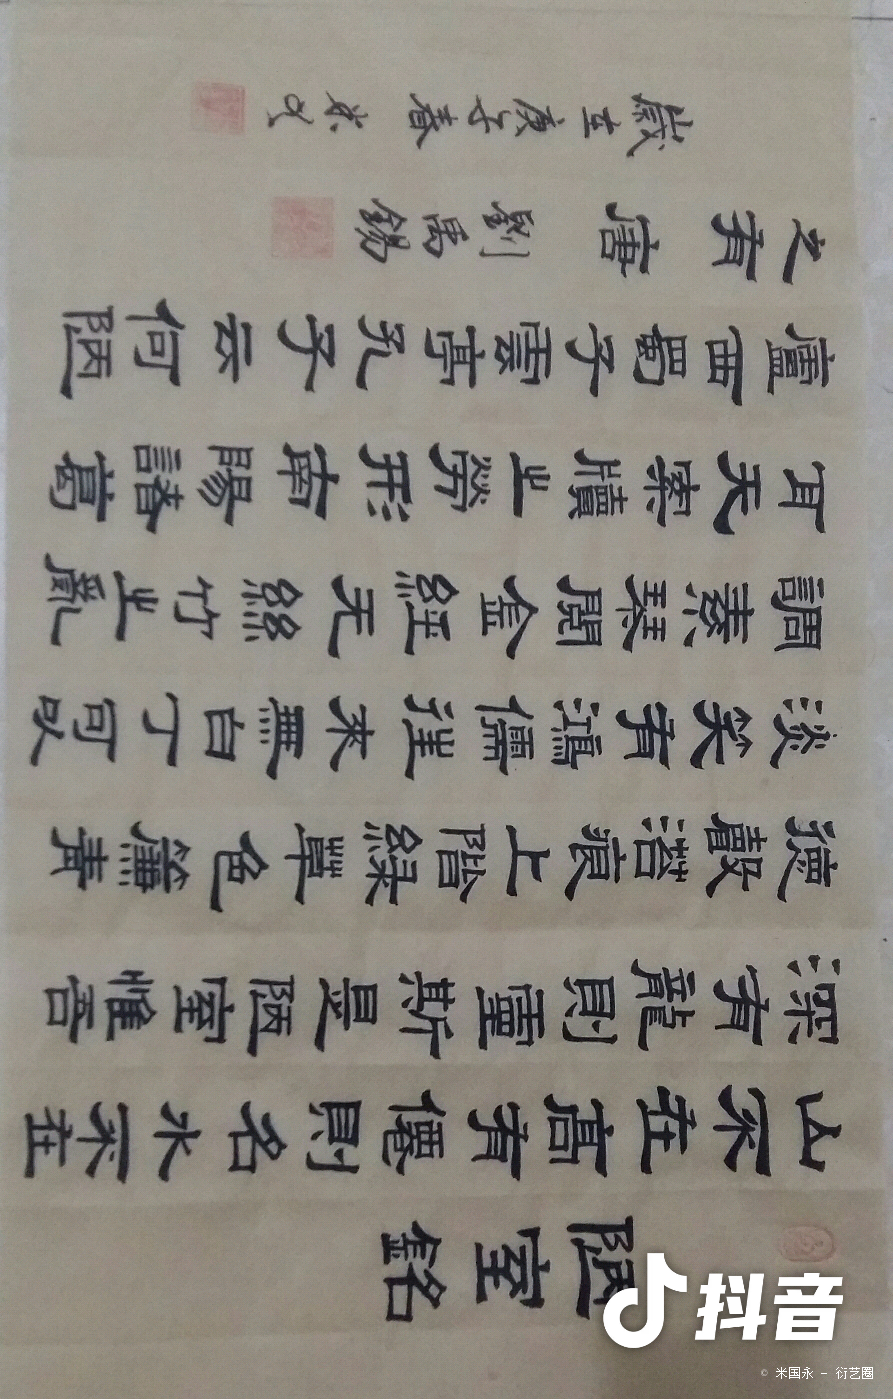 陋室銘
山不在髙有僊則名水不在
深有龍則靈斯是陋室惟吾
德馨苔痕上階緑草色簾青
淡笑有鴻儒往来無白丁可以
調素琴閲金經无絲竹之亂
耳天案牘之勞形南陽諸葛
廬西蜀子雲亭孔子云何陋
之有 唐 劉禹錫
歲在庚子春
抖音
© 米国永 - 衍艺圈